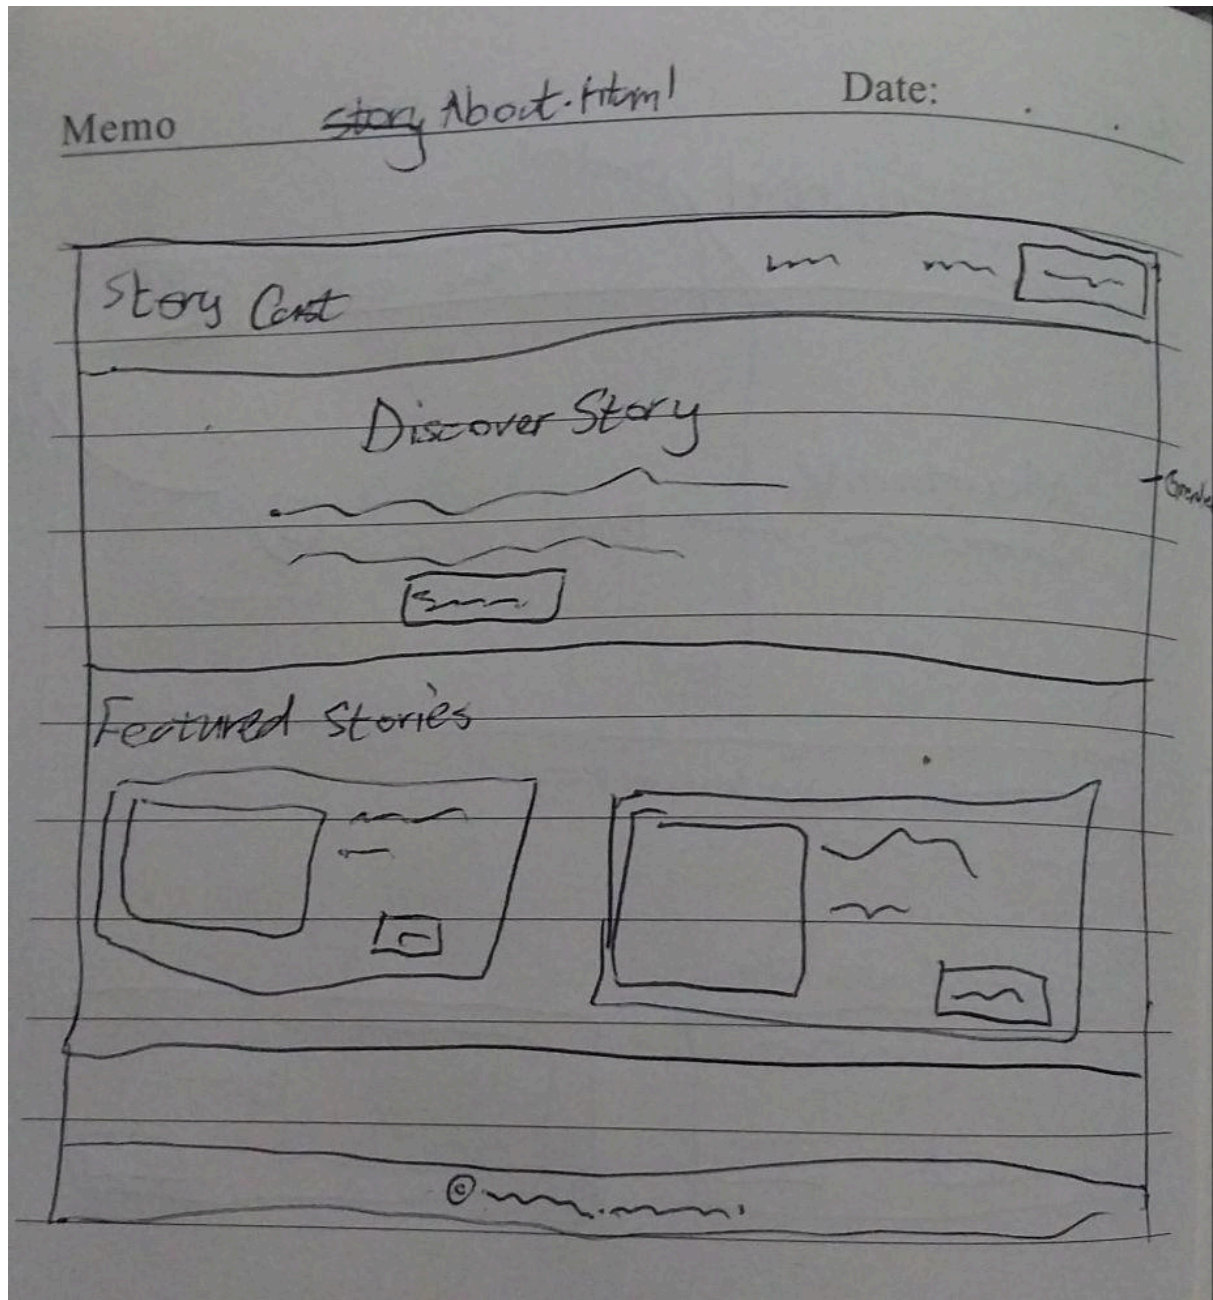 Memo story About.Html Date:
Story Cast
Discover Story
Featured Stories
©